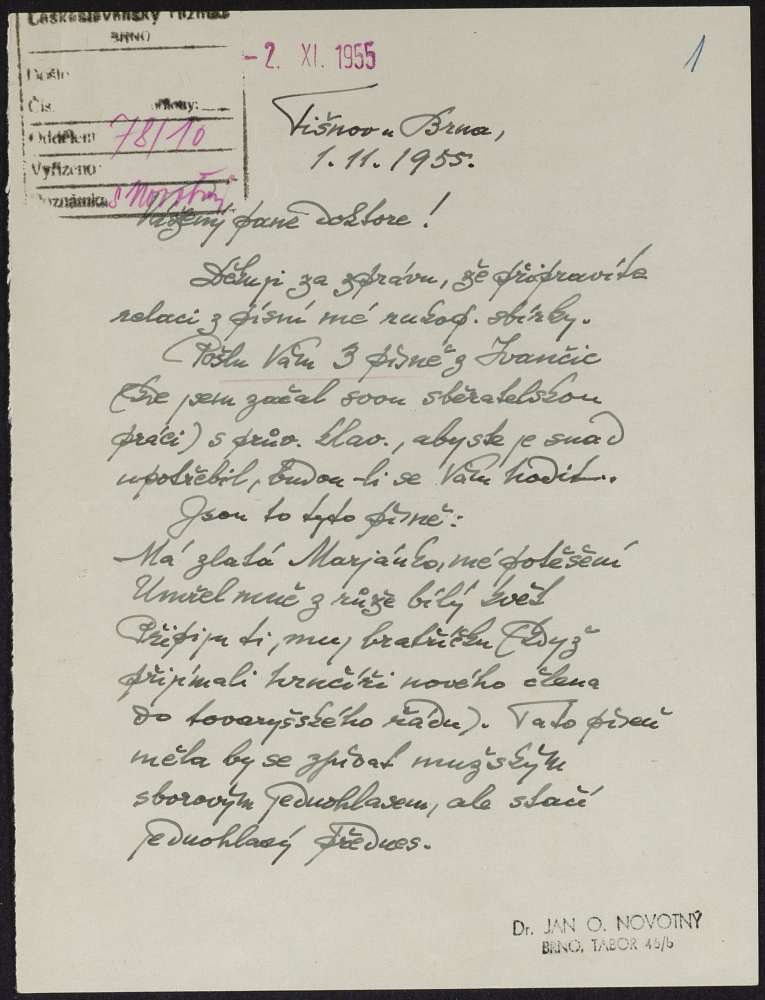 Československý rozhlas
BRNO
Došlo
Čís. přílohy:
Oddělení 78/10
Vyřizeno
Poznámka s Novotný
- 2. XI. 1955
1
Tišnov u Brna,
1. 11. 1955.
Vážený pane doktore!
Děkuji za zprávu, že připravíte
relaci z písní mé rukop. sbírky.
Pošlu Vám 3 písně z Ivančic
(kde jsem začal svou sběratelskou
práci) s prův. klav., abyste je snad
upotřebil, budou-li se Vám hodit.
Jsou to tyto písně:
Má zlatá Marjánko, mé potěšení
Umřel mně z růže bílý květ
Připiju ti, muj bratříčku (když
přijímali hrnčíři nového člena
do tovaryšského řádu). Tato píseň
měla by se zpívat mužským
sborovým jednohlasem, ale stačí
jednohlasý přednes.
Dr. JAN O. NOVOTNÝ
BRNO, TÁBOR 46/b